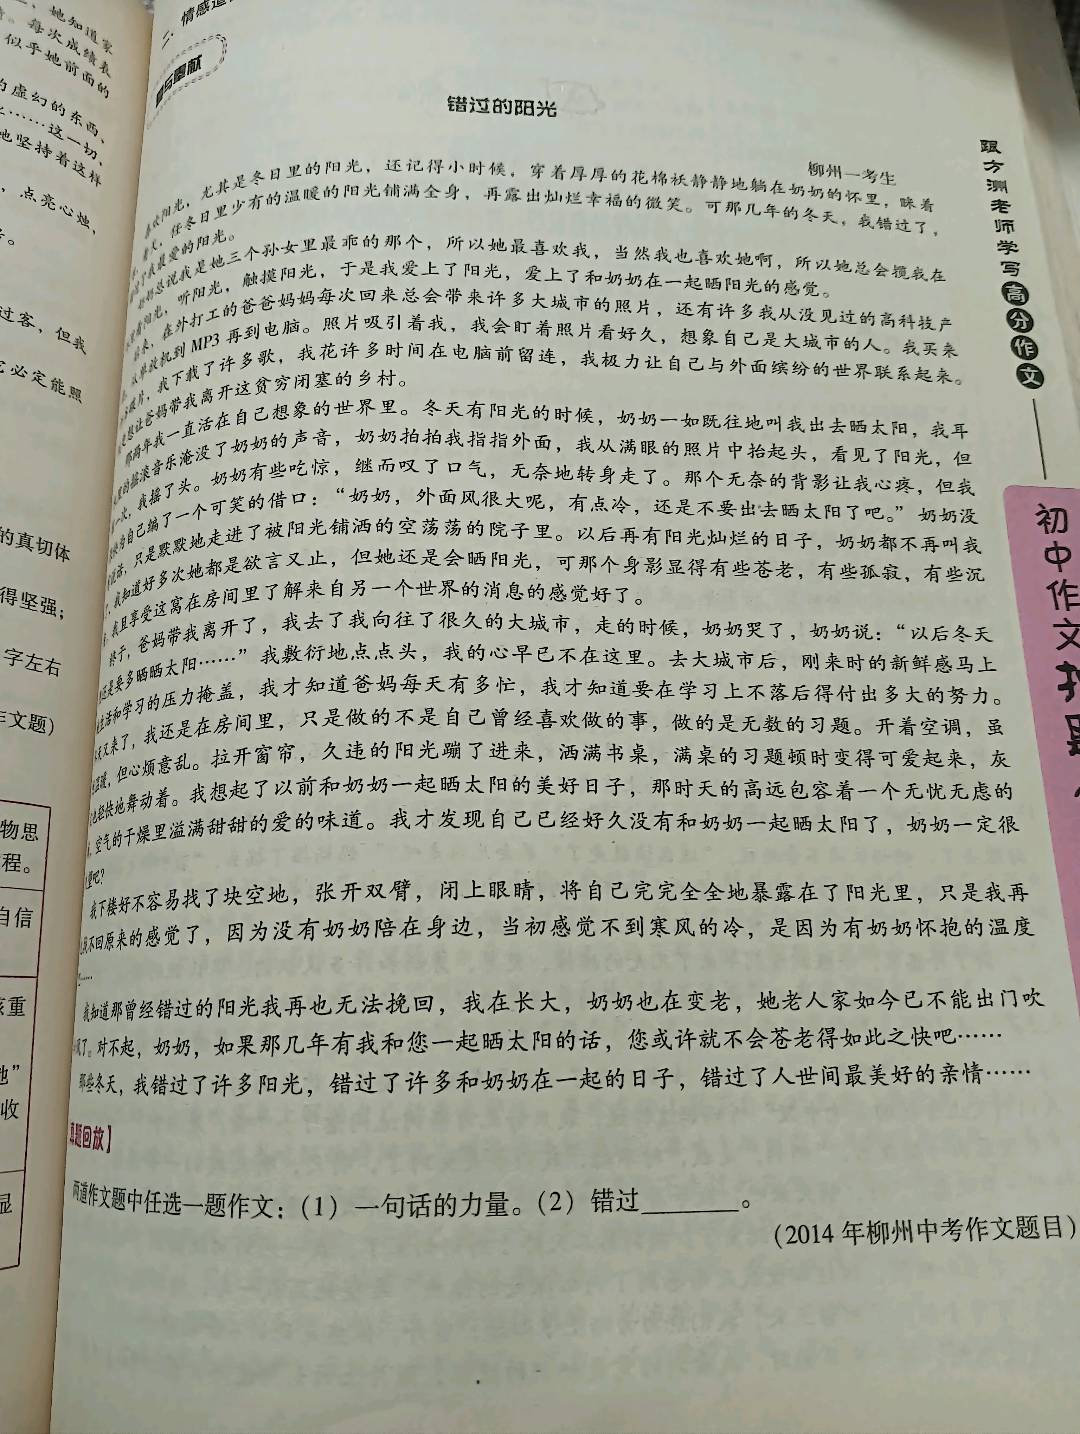 ，她知道家
。每次成绩表
似乎她前面的
的虚幻的东西、
……这一切，
地坚持着这样
，点亮心烛，
过客，但我
必定能照
的真切体
得坚强；
字左右
作文题）
物思
程。
自信
重
地”
收
显
二、情感
与奉献
错过的阳光
柳州一考生
喜欢阳光，尤其是冬日里的阳光，还记得小时候，穿着厚厚的花棉袄静静地躺在奶奶的怀里，眯着
，任冬日里少有的温暖的阳光铺满全身，再露出灿烂幸福的微笑。可那几年的冬天，我错过了，
了我最爱的阳光。
奶奶总说我是她三个孙女里最乖的那个，所以她最喜欢我，当然我也喜欢她啊，所以她总会揽我在
看阳光，听阳光，触摸阳光，于是我爱上了阳光，爱上了和奶奶在一起晒阳光的感觉。
后来，在外打工的爸爸妈妈每次回来总会带来许多大城市的照片，还有许多我从没见过的高科技产
，从单放机到MP3再到电脑。照片吸引着我，我会盯着照片看好久，想象自己是大城市的人。我买来
片，我下载了许多歌，我花许多时间在电脑前留连，我极力让自己与外面缤纷的世界联系起来。
想让爸妈带我离开这贫穷闭塞的乡村。
那两年我一直活在自己想象的世界里。冬天有阳光的时候，奶奶一如既往地叫我出去晒太阳，我耳
里的摇滚音乐淹没了奶奶的声音，奶奶拍拍我指指外面，我从满眼的照片中抬起头，看见了阳光，但
一次，我摇了头。奶奶有些吃惊，继而叹了口气，无奈地转身走了。那个无奈的背影让我心疼，但我
为自己编了一个可笑的借口：“奶奶，外面风很大呢，有点冷，还是不要出去晒太阳了吧。”奶奶没
话，只是默默地走进了被阳光铺洒的空荡荡的院子里。以后再有阳光灿烂的日子，奶奶都不再叫我
了，我知道好多次她都是欲言又止，但她还是会晒阳光，可那个身影显得有些苍老，有些孤寂，有些沉
，我且享受这窝在房间里了解来自另一个世界的消息的感觉好了。
终于，爸妈带我离开了，我去了我向往了很久的大城市，走的时候，奶奶哭了，奶奶说：“以后冬天
还是要多晒晒太阳……”我敷衍地点点头，我的心早已不在这里。去大城市后，刚来时的新鲜感马上
生活和学习的压力掩盖，我才知道爸妈每天有多忙，我才知道要在学习上不落后得付出多大的努力。
冬天又来了，我还是在房间里，只是做的不是自己曾经喜欢做的事，做的是无数的习题。开着空调，虽
温暖，但心烦意乱。拉开窗帘，久违的阳光蹦了进来，洒满书桌，满桌的习题顿时变得可爱起来，灰
也轻快地舞动着。我想起了以前和奶奶一起晒太阳的美好日子，那时天的高远包容着一个无忧无虑的
，空气的干燥里溢满甜甜的爱的味道。我才发现自己已经好久没有和奶奶一起晒太阳了，奶奶一定很
望吧？
我下楼好不容易找了块空地，张开双臂，闭上眼睛，将自己完完全全地暴露在了阳光里，只是我再
找不回原来的感觉了，因为没有奶奶陪在身边，当初感觉不到寒风的冷，是因为有奶奶怀抱的温度
……
我知道那曾经错过的阳光我再也无法挽回，我在长大，奶奶也在变老，她老人家如今已不能出门吹
风了。对不起，奶奶，如果那几年有我和您一起晒太阳的话，您或许就不会苍老得如此之快吧……
那些冬天，我错过了许多阳光，错过了许多和奶奶在一起的日子，错过了人世间最美好的亲情……
真题回放】
两道作文题中任选一题作文：（1）一句话的力量。（2）错过______。
（2014年柳州中考作文题目）
跟方渊老师学写高分作文
初中作文